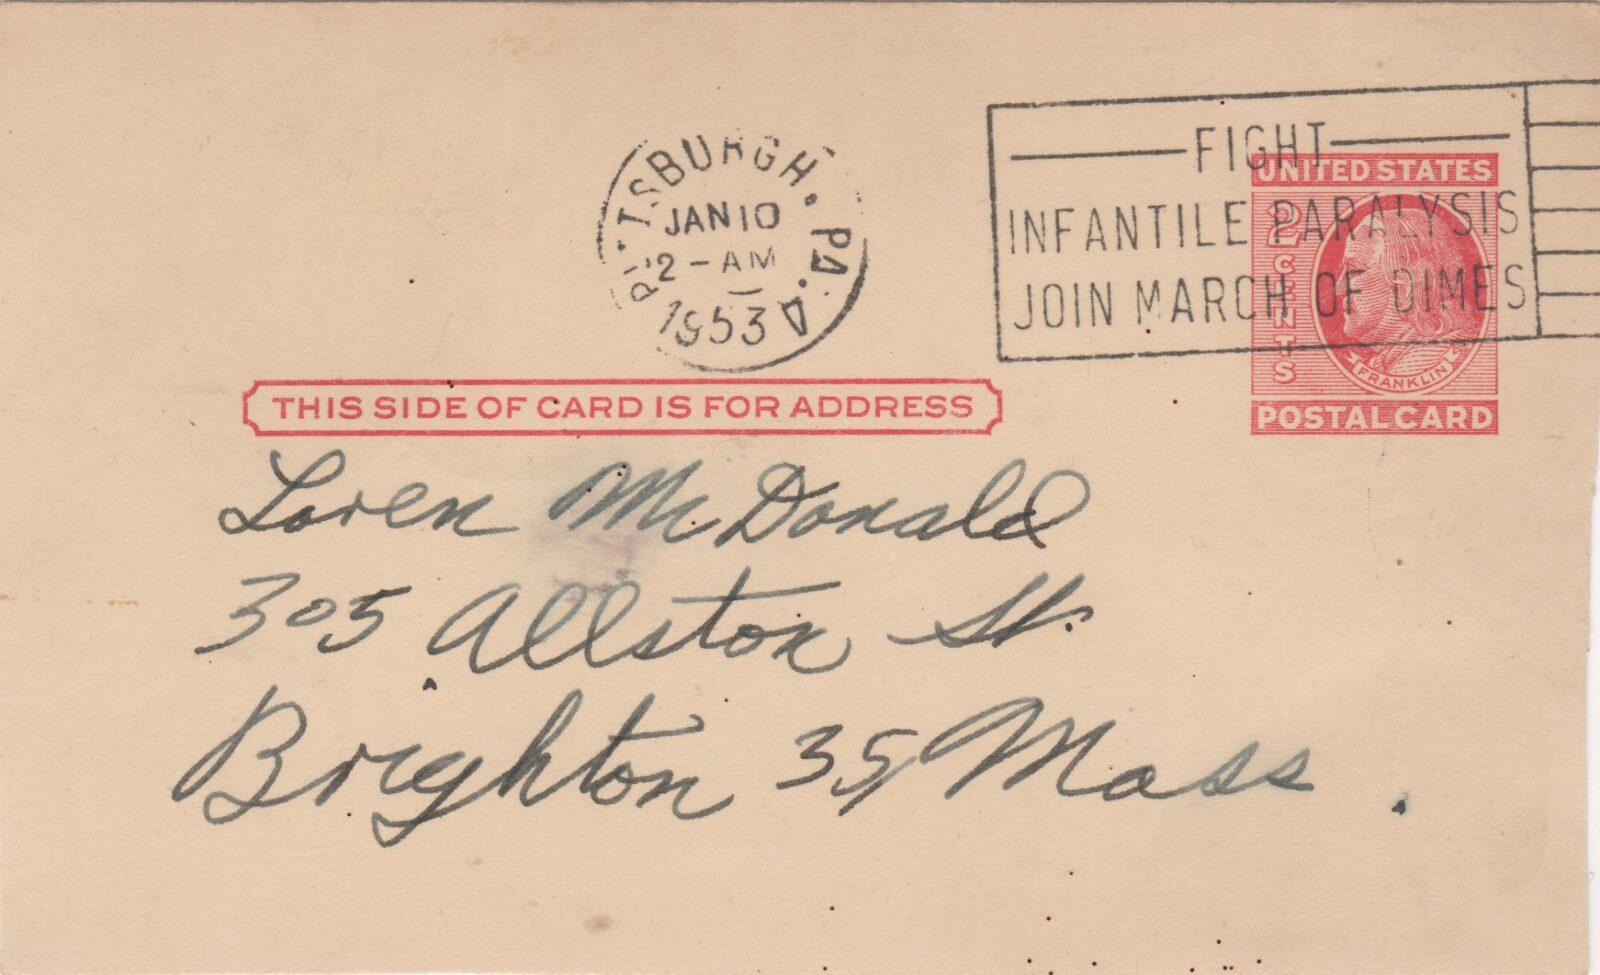 PITTSBURGH, PA. 4
JAN 10
2 - AM
1953
FIGHT
INFANTILE PARALYSIS
JOIN MARCH OF DIMES
UNITED STATES
2 CENTS
FRANKLIN
POSTAL CARD
THIS SIDE OF CARD IS FOR ADDRESS
Loren McDonald
305 Allston St.
Brighton 35, Mass.